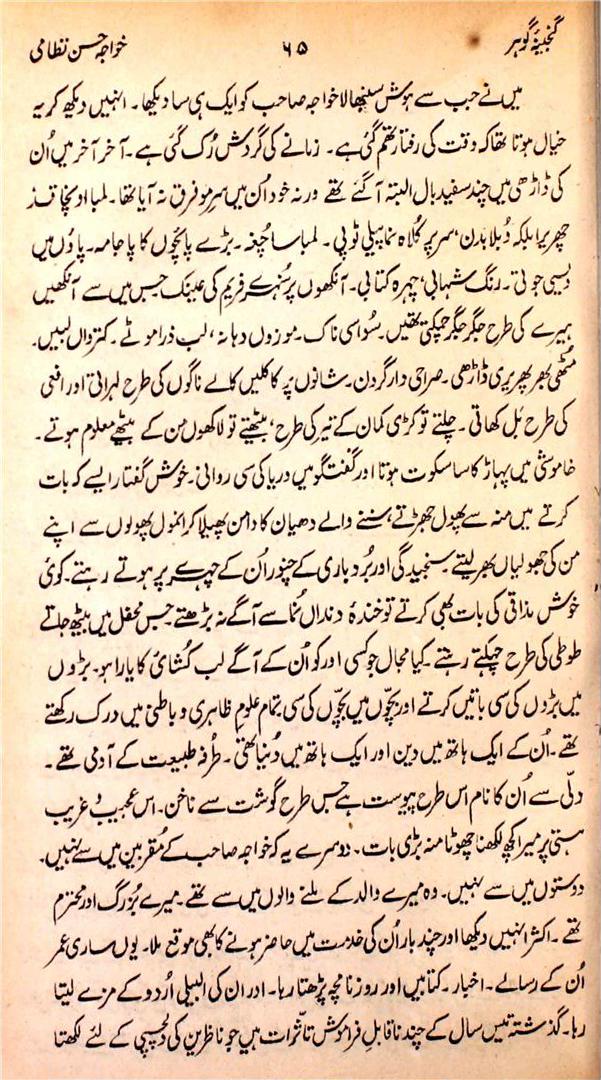 گنجینۂ گوہر ۶۵ خواجہ حسن نظامی
میں نے جب سے ہوش سنبھالا خواجہ صاحب کو ایک ہی سا دیکھا۔ انہیں دیکھ کر یہ
خیال ہوتا تھا کہ وقت کی رفتار تھم گئی ہے۔ زمانے کی گردش رُک گئی ہے۔ آخر آخر میں اُن
کی ڈاڑھی میں چند سفید بال البتہ آ گئے تھے ورنہ خود اُن میں سرِ مو فرق نہ آیا تھا۔ لمبا اونچا قد
چھریرا بلکہ دُبلا بدن، سر پر کُلاہ نما پیلی ٹوپی۔ لمبا سا چُغہ۔ بڑے پائچوں کا پاجامہ۔ پاؤں میں
دیسی جوتی۔ رنگ شہابی، چہرہ کتابی۔ آنکھوں پر سُنہرے فریم کی عینک جس میں سے آنکھیں
ہیرے کی طرح جگر جگر چمکتی تھیں۔ سُوا سی ناک۔ موزوں دہانہ، لب ذرا موٹے۔ کترواں لبیں۔
مُٹھی بھر پھریری ڈاڑھی۔ صراحی دار گردن۔ شانوں پر کاکلیں کالے ناگوں کی طرح لہراتی اور افعی
کی طرح بَل کھاتی۔ چلتے تو کڑی کمان کے تیر کی طرح، بیٹھتے تو لاکھوں من کے بیٹھے معلوم ہوتے۔
خاموشی میں پہاڑ کا سا سکوت ہوتا اور گفتگو میں دریا کی سی روانی۔ خوش گفتار ایسے کہ بات
کرتے میں منہ سے پھول جھڑتے، سننے والے دھیان کا دامن پھیلا کر انمول پھولوں سے اپنے
من کی جھولیاں بھر لیتے۔ سنجیدگی اور بُردباری کے چنور اُن کے چہرے پر ہوتے رہتے۔ کوئی
خوش مذاقی کی بات بھی کرتے تو خندۂ دنداں نُما سے آگے نہ بڑھتے۔ جس محفل میں بیٹھ جاتے
طوطی کی طرح چہکتے رہتے۔ کیا مجال جو کسی اور کو اُن کے آگے لب کشائی کا یارا ہو۔ بڑوں
میں بڑوں کی سی باتیں کرتے اور بچّوں میں بچّوں کی سی۔ تمام علومِ ظاہری و باطنی میں درک رکھتے
تھے۔ اُن کے ایک ہاتھ میں دین اور ایک ہاتھ میں دُنیا تھی۔ طرفہ طبیعت کے آدمی تھے۔
دلّی سے اُن کا نام اس طرح پیوست ہے جس طرح گوشت سے ناخن۔ اس عجیب و غریب
ہستی پر میرا کچھ لکھنا چھوٹا منہ بڑی بات۔ دوسرے یہ کہ خواجہ صاحب کے مُقربین میں سے نہیں۔
دوستوں میں سے نہیں۔ وہ میرے والد کے ملنے والوں میں سے تھے۔ میرے بُزرگ اور محترم
تھے۔ اکثر انہیں دیکھا اور چند بار اُن کی خدمت میں حاضر ہونے کا بھی موقع ملا۔ یوں ساری عمر
اُن کے رسالے۔ اخبار۔ کتابیں اور روزنامچہ پڑھتا رہا۔ اور ان کی البیلی اُردو کے مزے لیتا
رہا۔ گذشتہ تیس سال کے چند ناقابلِ فراموش تأثرات ہیں جو ناظرین کی دلچسپی کے لئے لکھتا